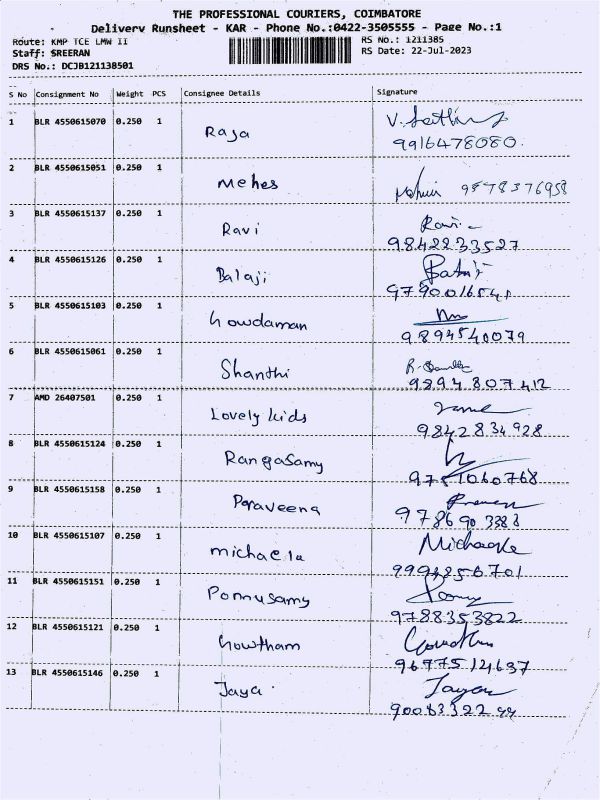 THE PROFESSIONAL COURIERS, COIMBATORE
Delivery Runsheet - KAR - Phone No.:0422-3505555 - Page No.:1
Route: KMP TCE LMW II
RS No.: 1211385
Staff: SREERAN
RS Date: 22-Jul-2023
DRS No.: DCJB121138501
S No Consignment No Weight PCS Consignee Details Signature
1 BLR 4550615070 0.250 1 Raja
9916478080.
2 BLR 4550615051 0.250 1 Mehes 9578376958
3 BLR 4550615137 0.250 1 Ravi Ravi
9842233527
4 BLR 4550615126 0.250 1 Balaji
9790016541
5 BLR 4550615103 0.250 1 Gowdaman
9894540079
6 BLR 4550615061 0.250 1 Shanthi
9894807412
7 AMD 26407501 0.250 1 Lovely kids
9842834928
8 BLR 4550615124 0.250 1 Rangasamy
9751060768
9 BLR 4550615158 0.250 1 Paraveena
9786903388
10 BLR 4550615107 0.250 1 michaela
9994256701
11 BLR 4550615151 0.250 1 Ponnusamy
9788353822
12 BLR 4550615121 0.250 1 Gowtham
96775124637
13 BLR 4550615146 0.250 1 Jaya.
9008332299